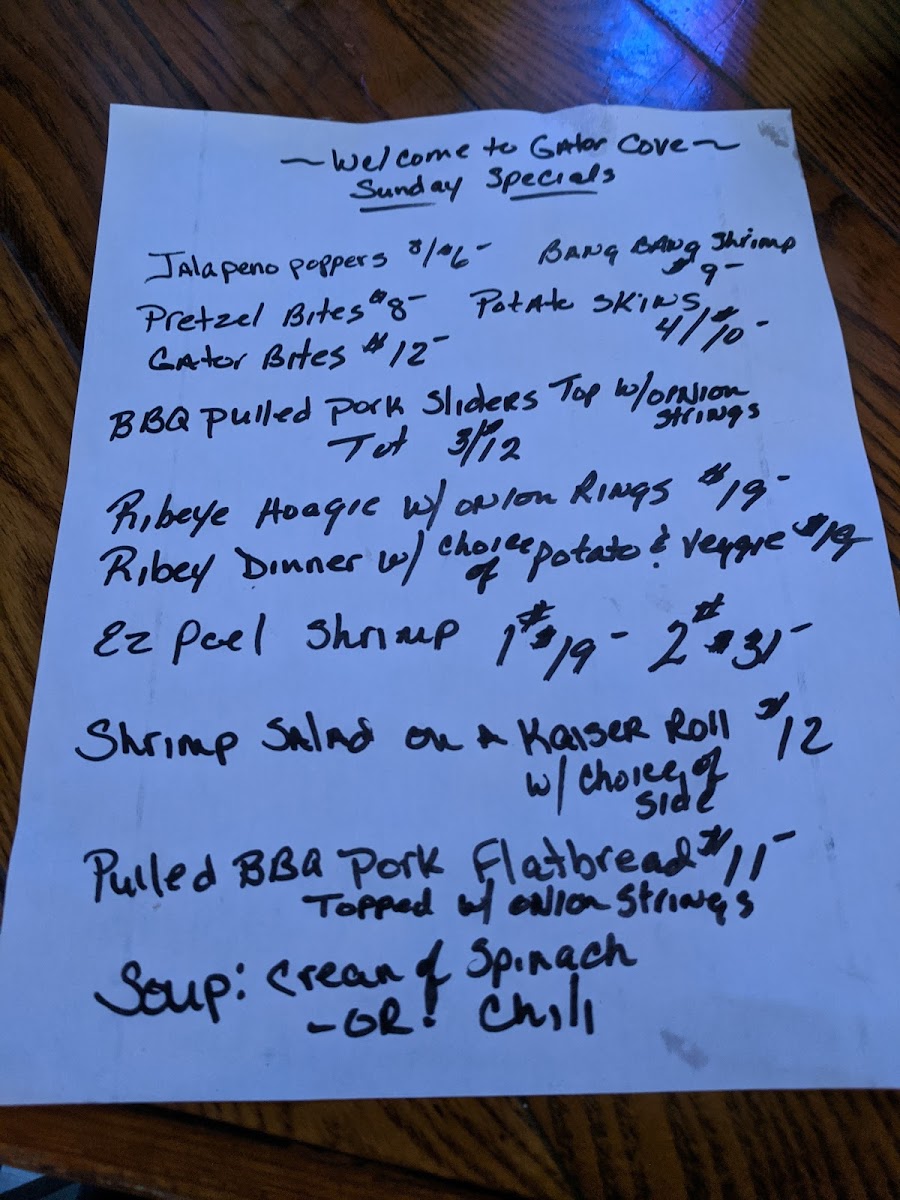 ~Welcome to Gator Cove~
Sunday Specials
Jalapeno poppers 8/$6- Bang Bang Shrimp
$9-
Pretzel Bites $8- Potato Skins
4/$10-
Gator Bites $12-
BBQ pulled pork Sliders Top w/onion
Strings
Tot 3/$12
Ribeye Hoagie w/ onion Rings $19-
Ribey Dinner w/ choice of potato & Veggie $19
Ez Peel Shrimp 1# $19- 2# $31-
Shrimp Salad on a Kaiser Roll $12
w/ choice of
side
Pulled BBQ Pork Flatbread $11-
Topped w/ onion Strings
Soup: Cream of Spinach
-OR! Chili